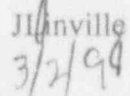 JLinville
3/2/98